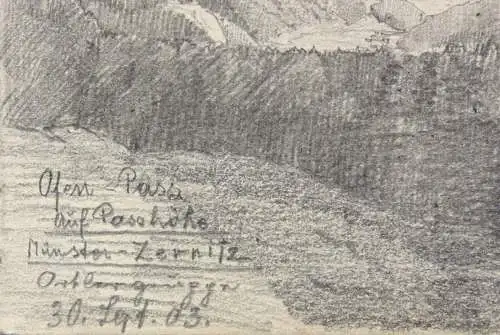 Ofen-Pass
auf Passhöhe
Münster-Zernitz
Ortlergruppe
30. Sept. 03.